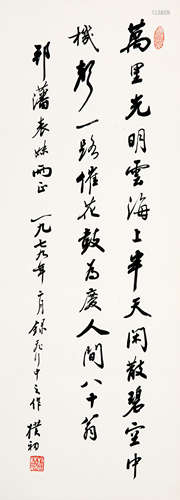 萬里光明雲海上半天閑散碧空中
機聲一路催花鼓為慶人間八十翁
邗藩表妹兩正 一九七九年二月錄飛行中之作 樸初